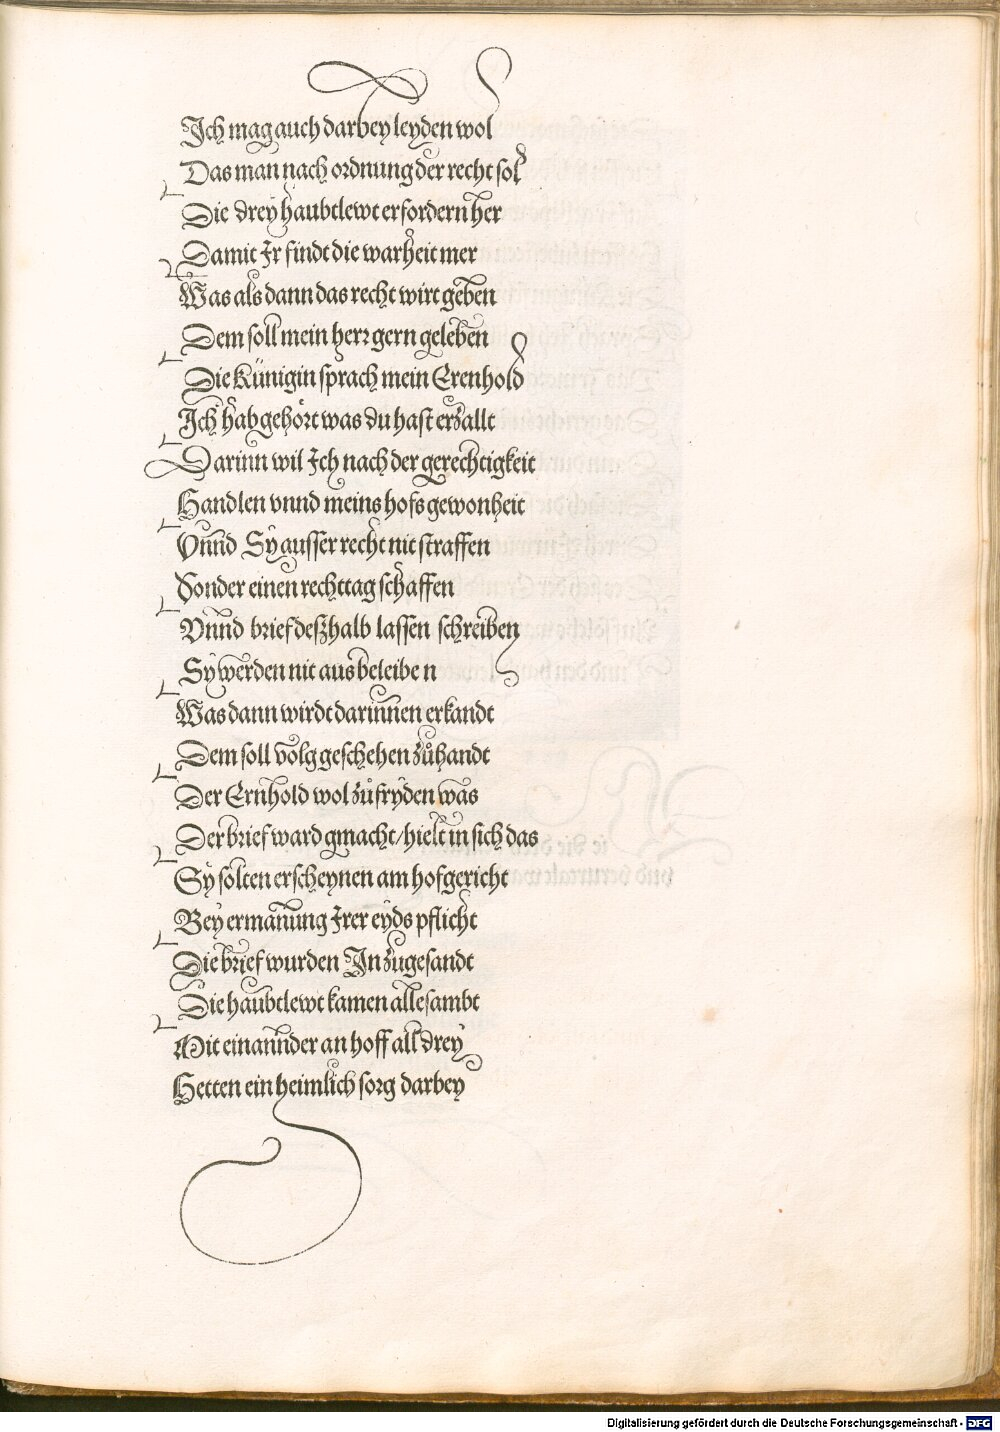 Ich mag auch darbey leyden wol
Das man nach ordnung der recht sol
Die drey haubtlewt erfordern her
Damit Ir findt die warheit mer
Was als dann das recht wirt geben
Dem soll mein herr gern geleben
Die Künigin sprach mein Erenhold
Ich hab gehört was du hast erzallt
Darinn wil Ich nach der gerechtigkeit
Handlen vnnd meins hofs gewonheit
Vnnd Sy ausser recht nit straffen
Sonder einen rechttag schaffen
Vnnd brief deßhalb lassen schreiben
Sy werden nit aus beleiben
Was dann wirdt darinnen erkandt
Dem soll volg geschehen zůhandt
Der Ernhold wol zůfryden was
Der brief ward gmacht/hielt in sich das
Sy solten erscheynen am hofgericht
Bey ermanung Irer eyds pflicht
Die brief wurden In zugesandt
Die haubtlewt kamen alle sambt
Mit einannder an hoff all drey
Hetten ein heimlich sorg darbey
Digitalisierung gefördert durch die Deutsche Forschungsgemeinschaft - DFG